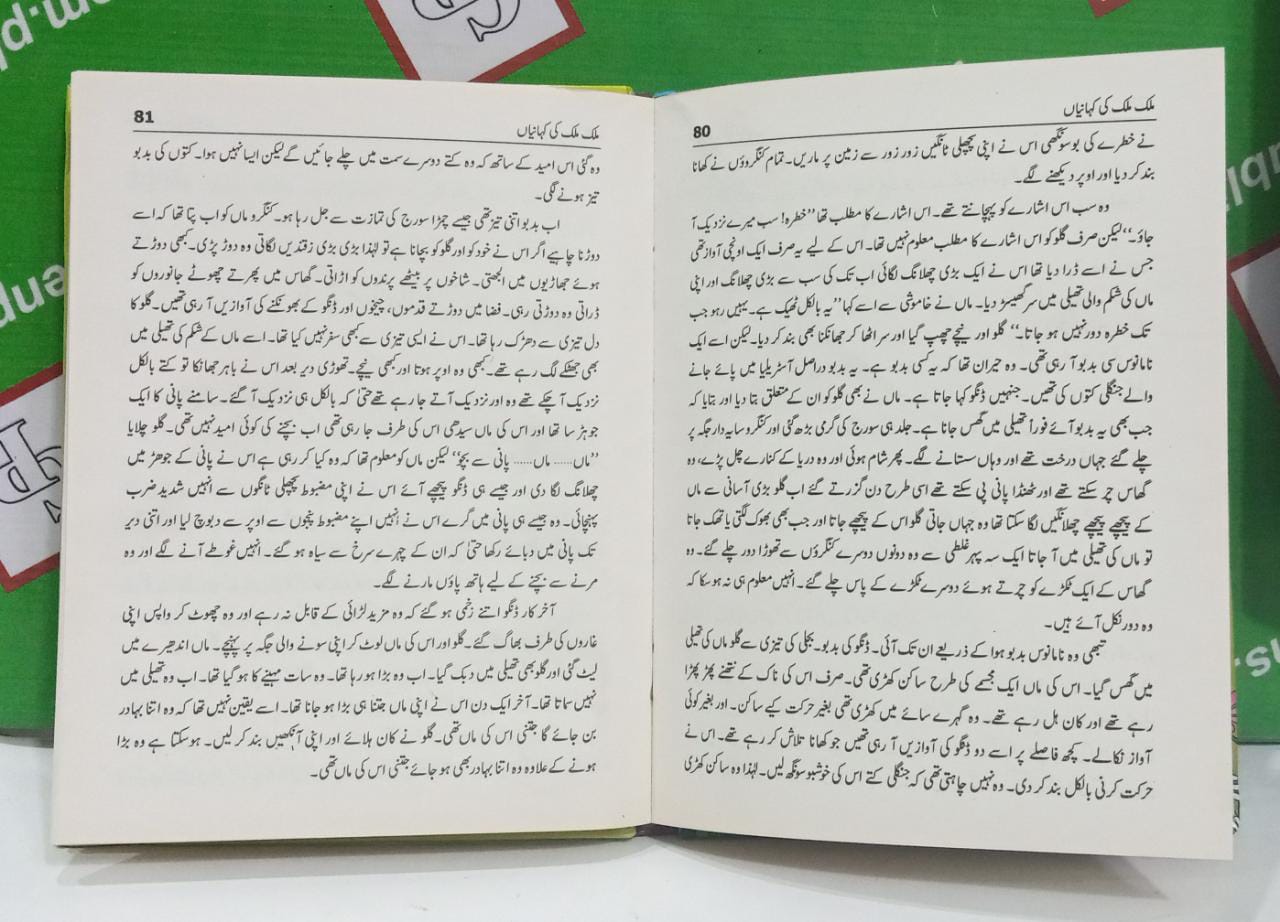 ملک ملک کی کہانیاں
80
نے خطرے کی بو سونگھی اس نے اپنی پچھلی ٹانگیں زور زور سے زمین پر ماریں۔ تمام کنگروؤں نے کھانا
بند کر دیا اور اوپر دیکھنے لگے۔
وہ سب اس اشارے کو پہچانتے تھے۔ اس اشارے کا مطلب تھا ”خطرہ! سب میرے نزدیک آ
جاؤ۔“ لیکن صرف گلو کو اس اشارے کا مطلب معلوم نہیں تھا۔ اس کے لیے یہ صرف ایک اونچی آواز تھی
جس نے اسے ڈرا دیا تھا اس نے ایک بڑی چھلانگ لگائی اب تک کی سب سے بڑی چھلانگ اور اپنی
ماں کی شکم والی تھیلی میں سر گھسیڑ دیا۔ ماں نے خاموشی سے اسے کہا ”یہ بالکل ٹھیک ہے۔ یہیں رہو جب
تک خطرہ دور نہیں ہو جاتا۔“ گلو اور نیچے چھپ گیا اور سر اٹھا کر جھانکنا بھی بند کر دیا۔ لیکن اسے ایک
نامانوس سی بدبو آ رہی تھی۔ وہ حیران تھا کہ یہ کسی بدبو ہے۔ یہ بدبو دراصل آسٹریلیا میں پائے جانے
والے جنگلی کتوں کی تھیں۔ جنہیں ڈنگو کہا جاتا ہے۔ ماں نے بھی گلو کو ان کے متعلق بتا دیا اور بتایا کہ
جب بھی یہ بدبو آئے فوراً تھیلی میں گھس جانا ہے۔ جلد ہی سورج کی گرمی بڑھ گئی اور کنگرو سایہ دار جگہ پر
چلے گئے جہاں درخت تھے اور وہاں سستانے لگے۔ پھر شام ہوئی اور وہ دریا کے کنارے چل پڑے، وہ
گھاس چر سکتے تھے اور ٹھنڈا پانی پی سکتے تھے اسی طرح دن گزرتے گئے اب گلو بڑی آسانی سے ماں
کے پیچھے پیچھے چھلانگیں لگا سکتا تھا وہ جہاں جاتی گلو اس کے پیچھے جاتا اور جب بھی بھوک لگتی یا تھک جاتا
تو ماں کی تھیلی میں آ جاتا ایک سہ پہر غلطی سے وہ دونوں دوسرے کنگروں سے تھوڑا دور چلے گئے۔ وہ
گھاس کے ایک ٹکڑے کو چرتے ہوئے دوسرے ٹکڑے کے پاس چلے گئے۔ انہیں معلوم ہی نہ ہوسکا کہ
وہ دور نکل آئے ہیں۔
تبھی وہ نامانوس بدبو ہوا کے ذریعے ان تک آئی۔ ڈنگو کی بدبو۔ بجلی کی تیزی سے گلو ماں کی تھیلی
میں گھس گیا۔ اس کی ماں ایک مجسمے کی طرح ساکن کھڑی تھی۔ صرف اس کی ناک کے نتھنے پھڑ پھڑا
رہے تھے اور کان ہل رہے تھے۔ وہ گہرے سائے میں کھڑی تھی بغیر حرکت کیے ساکن۔ اور بغیر کوئی
آواز نکالے۔ کچھ فاصلے پر اسے دو ڈنگو کی آوازیں آ رہی تھیں جو کھانا تلاش کر رہے تھے۔ اس نے
حرکت کرنی بالکل بند کر دی۔ وہ نہیں چاہتی تھی کہ جنگلی کتے اس کی خوشبو سونگھ لیں۔ لہٰذا وہ ساکن کھڑی
ملک ملک کی کہانیاں
81
وہ گئی اس امید کے ساتھ کہ وہ کتے دوسرے سمت میں چلے جائیں گے لیکن ایسا نہیں ہوا۔ کتوں کی بدبو
تیز ہونے لگی۔
اب بدبو اتنی تیز تھی جیسے چمڑا سورج کی تمازت سے جل رہا ہو۔ کنگرو ماں کو اب پتا تھا کہ اسے
دوڑنا چاہیے اگر اس نے خود کو اور گلو کو بچانا ہے تو لہٰذا بڑی بڑی زقندیں لگاتی وہ دوڑ پڑی۔ کبھی دوڑتے
ہوئے جھاڑیوں میں الجھتی۔ شاخوں پر بیٹھے پرندوں کو اڑاتی۔ گھاس میں پھرتے چھوٹے جانوروں کو
ڈراتی وہ دوڑتی رہی۔ فضا میں دوڑتے قدموں، چیخوں اور ڈنگو کے بھونکنے کی آوازیں آ رہی تھیں۔ گلو کا
دل تیزی سے دھڑک رہا تھا۔ اس نے ایسی تیزی سے کبھی سفر نہیں کیا تھا۔ اسے ماں کے شکم کی تھیلی میں
بھی جھٹکے لگ رہے تھے۔ کبھی وہ اوپر ہوتا اور کبھی نیچے۔ تھوڑی دیر بعد اس نے باہر جھانکا تو کتے بالکل
نزدیک آ چکے تھے وہ اور نزدیک آتے جا رہے تھے حتیٰ کہ بالکل ہی نزدیک آ گئے۔ سامنے پانی کا ایک
جوہڑ سا تھا اور اس کی ماں سیدھی اس کی طرف جا رہی تھی اب بچنے کی کوئی امید نہیں تھی۔ گلو چلایا
”ماں...... ماں...... پانی سے بچو“ لیکن ماں کو معلوم تھا کہ وہ کیا کر رہی ہے اس نے پانی کے جوھڑ میں
چھلانگ لگا دی اور جیسے ہی ڈنگو پیچھے آئے اس نے اپنی مضبوط پچھلی ٹانگوں سے انہیں شدید ضرب
پہنچائی۔ وہ جیسے ہی پانی میں گرے اس نے انہیں اپنے مضبوط پنجوں سے اوپر سے دبوچ لیا اور اتنی دیر
تک پانی میں دبائے رکھا حتیٰ کہ ان کے چہرے سرخ سے سیاہ ہو گئے۔ انہیں غوطے آنے لگے اور وہ
مرنے سے بچنے کے لیے ہاتھ پاؤں مارنے لگے۔
آخر کار ڈنگو اتنے زخمی ہو گئے کہ وہ مزید لڑائی کے قابل نہ رہے اور وہ چھوٹ کر واپس اپنی
غاروں کی طرف بھاگ گئے۔ گلو اور اس کی ماں لوٹ کر اپنی سونے والی جگہ پر پہنچے۔ ماں اندھیرے میں
لیٹ گئی اور گلو بھی تھیلی میں دبک گیا۔ اب وہ بڑا ہو رہا تھا۔ وہ سات مہینے کا ہو گیا تھا۔ اب وہ تھیلی میں
نہیں سماتا تھا۔ آخر ایک دن اس نے اپنی ماں جتنا ہی بڑا ہو جانا تھا۔ اسے یقین نہیں تھا کہ وہ اتنا بہادر
بن جائے گا جتنی اس کی ماں تھی۔ گلو نے کان ہلائے اور اپنی آنکھیں بند کر لیں۔ ہوسکتا ہے وہ بڑا
ہونے کے علاوہ وہ اتنا بہادر بھی ہو جائے جتنی اس کی ماں تھی۔